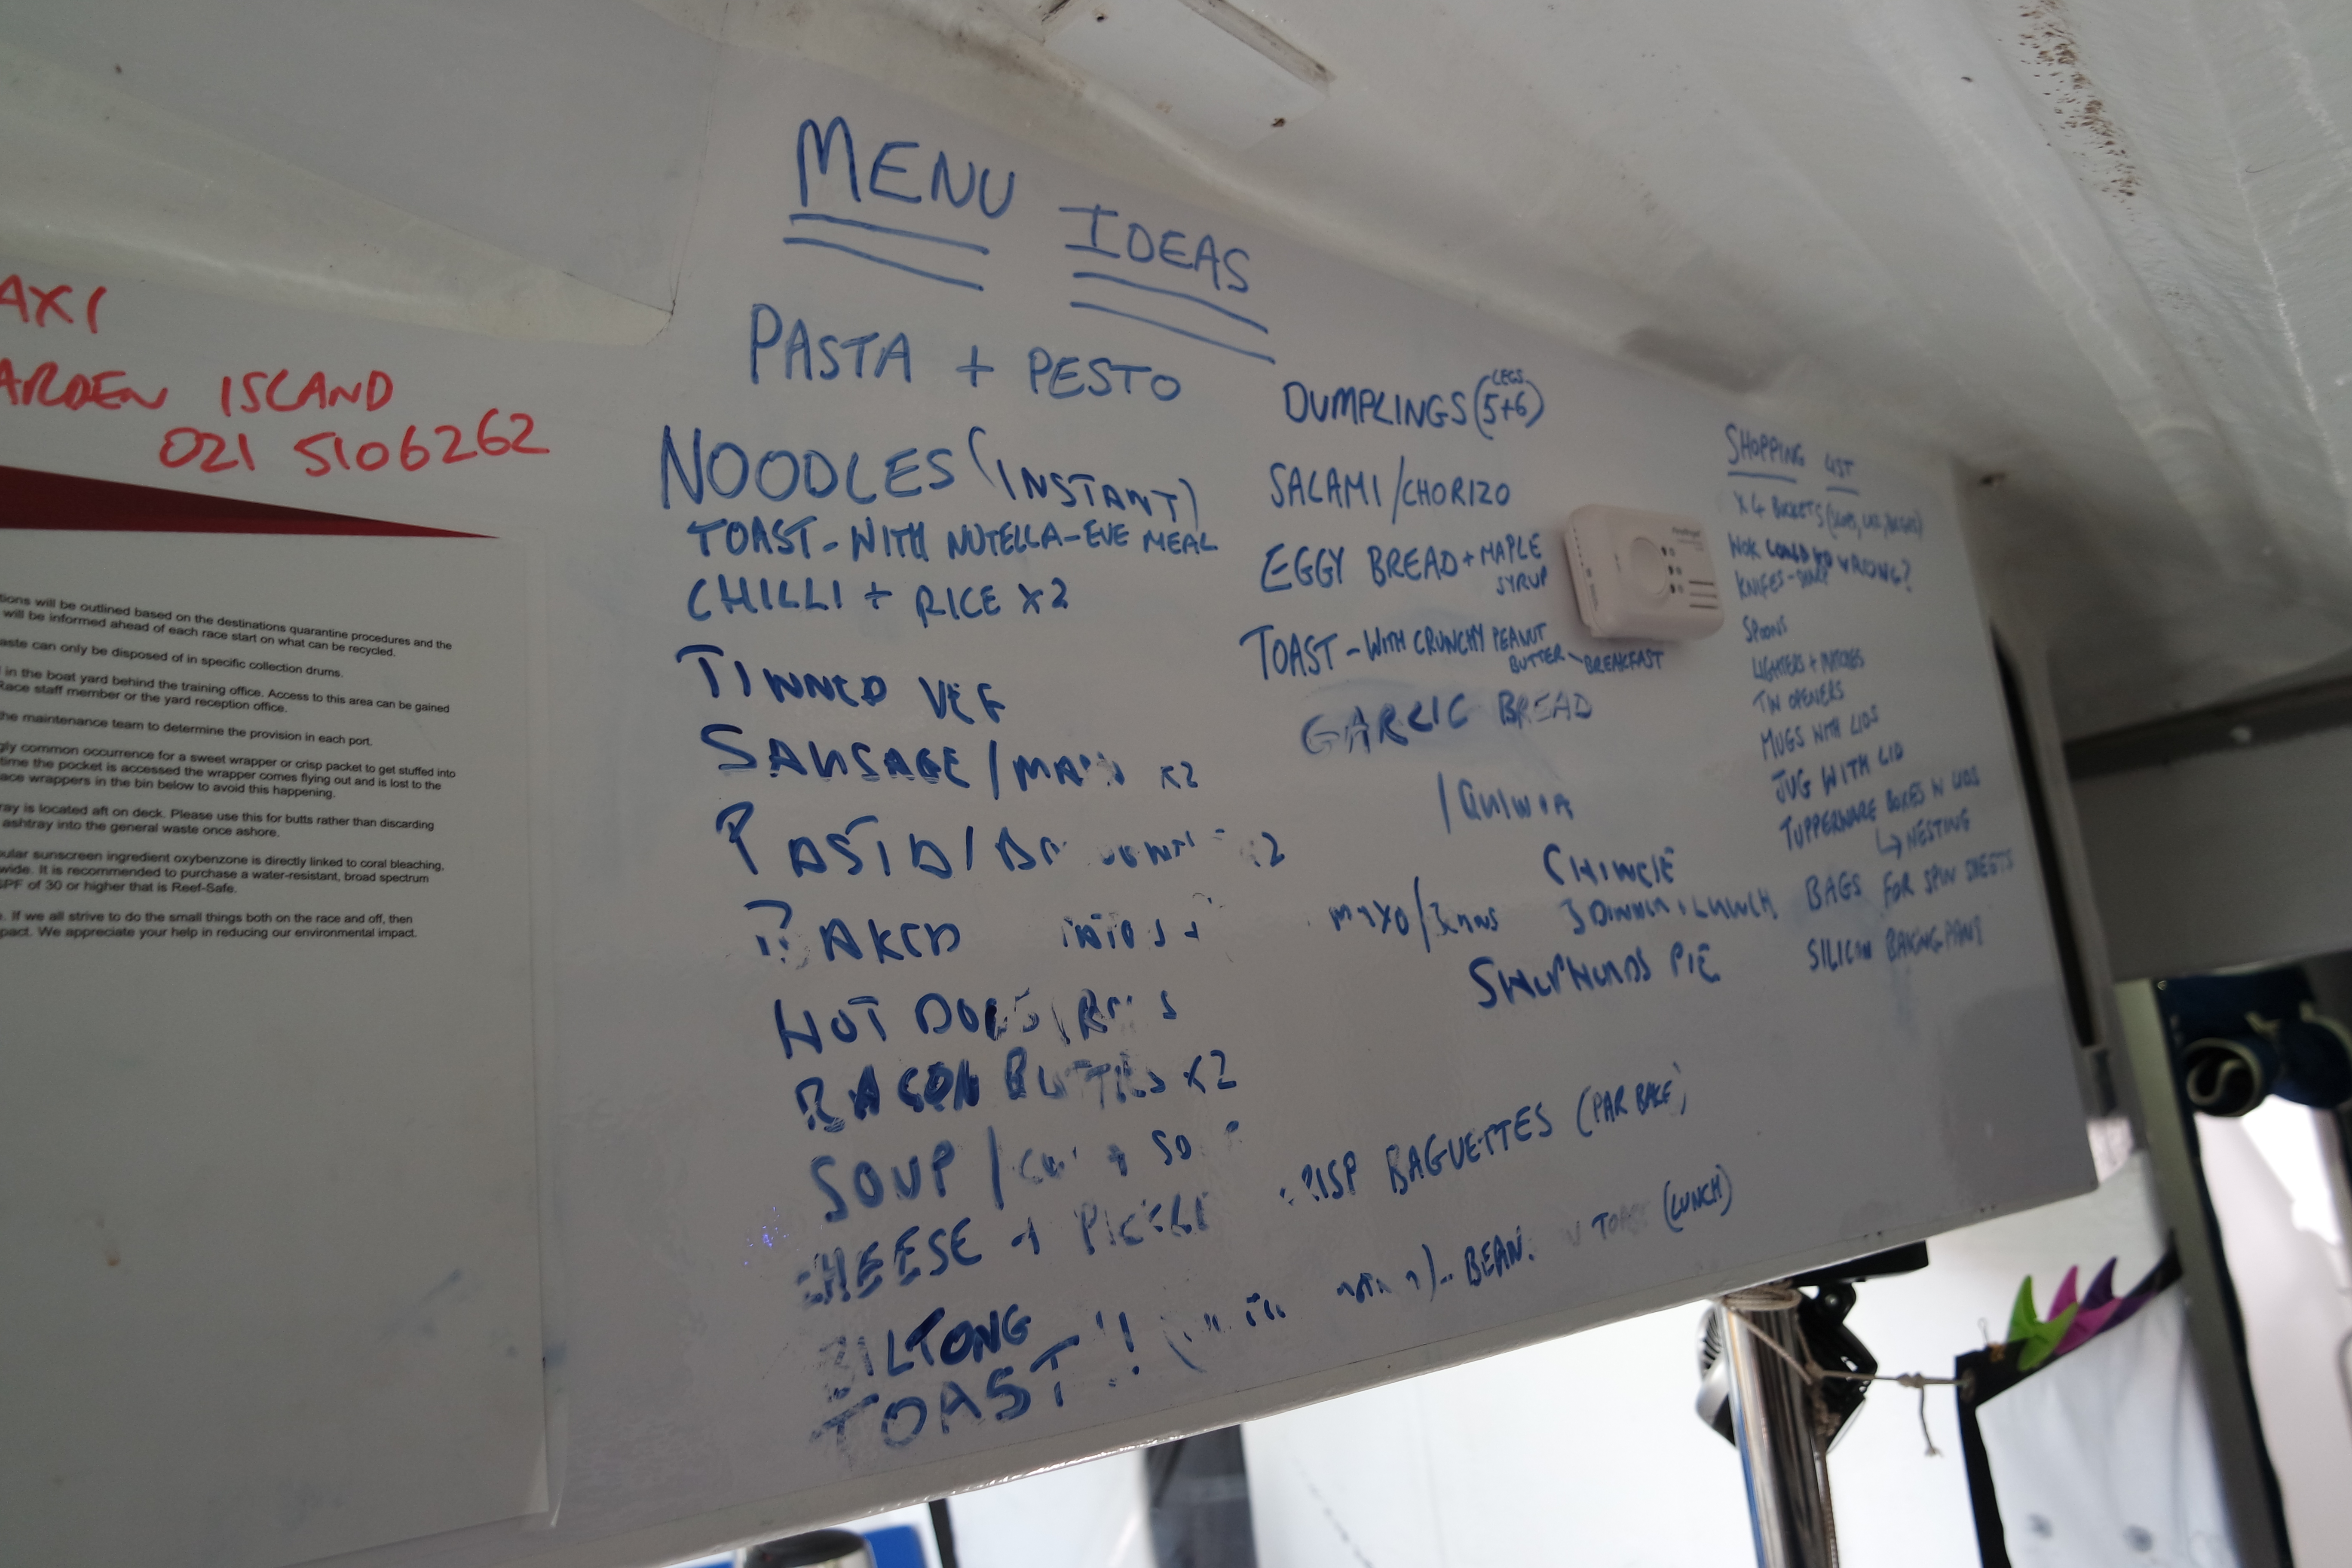 AXI
ARDEN ISLAND
021 5106262
tions will be outlined based on the destinations quarantine procedures and the
will be informed ahead of each race start on what can be recycled.
aste can only be disposed of in specific collection drums.
in the boat yard behind the training office. Access to this area can be gained
Race staff member or the yard reception office.
the maintenance team to determine the provision in each port.
gly common occurrence for a sweet wrapper or crisp packet to get stuffed into
time the pocket is accessed the wrapper comes flying out and is lost to the
ace wrappers in the bin below to avoid this happening.
ray is located aft on deck. Please use this for butts rather than discarding
ashtray into the general waste once ashore.
ular sunscreen ingredient oxybenzone is directly linked to coral bleaching,
wide. It is recommended to purchase a water-resistant, broad spectrum
SPF of 30 or higher that is Reef-Safe.
. If we all strive to do the small things both on the race and off, then
pact. We appreciate your help in reducing our environmental impact.
MENU IDEAS
PASTA + PESTO
NOODLES (INSTANT)
TOAST - WITH NUTELLA - EVE MEAL
CHILLI + RICE X2
TINNED VEG
SAUSAGE / X2
PASTA /
BAKED
HOT DOGS
BACON BUTTIES X2
SOUP /
CHEESE + PICKLE
BILTONG
TOAST!!
DUMPLINGS (LEGS 5+6)
SALAMI/CHORIZO
EGGY BREAD + MAPLE
SYRUP
TOAST - WITH CRUNCHY PEANUT
BUTTER - BREAKFAST
GARLIC BREAD
/ QUINOA
MAYO/
3 DINNER, LUNCH
PIE
CRISP BAGUETTES (PAR BAKE)
BEAN TOAST (LUNCH)
SHOPPING LIST
X 4 BUCKETS
WOK COULD GO WRONG?
KNIFES - SHARP
SPOONS
LIGHTERS + MATCHES
TIN OPENERS
MUGS WITH LIDS
JUG WITH LID
TUPPERWARE BOXES W LIDS
↳ NESTING
BAGS FOR SPIN SHEETS
SILICON BAKING PANS